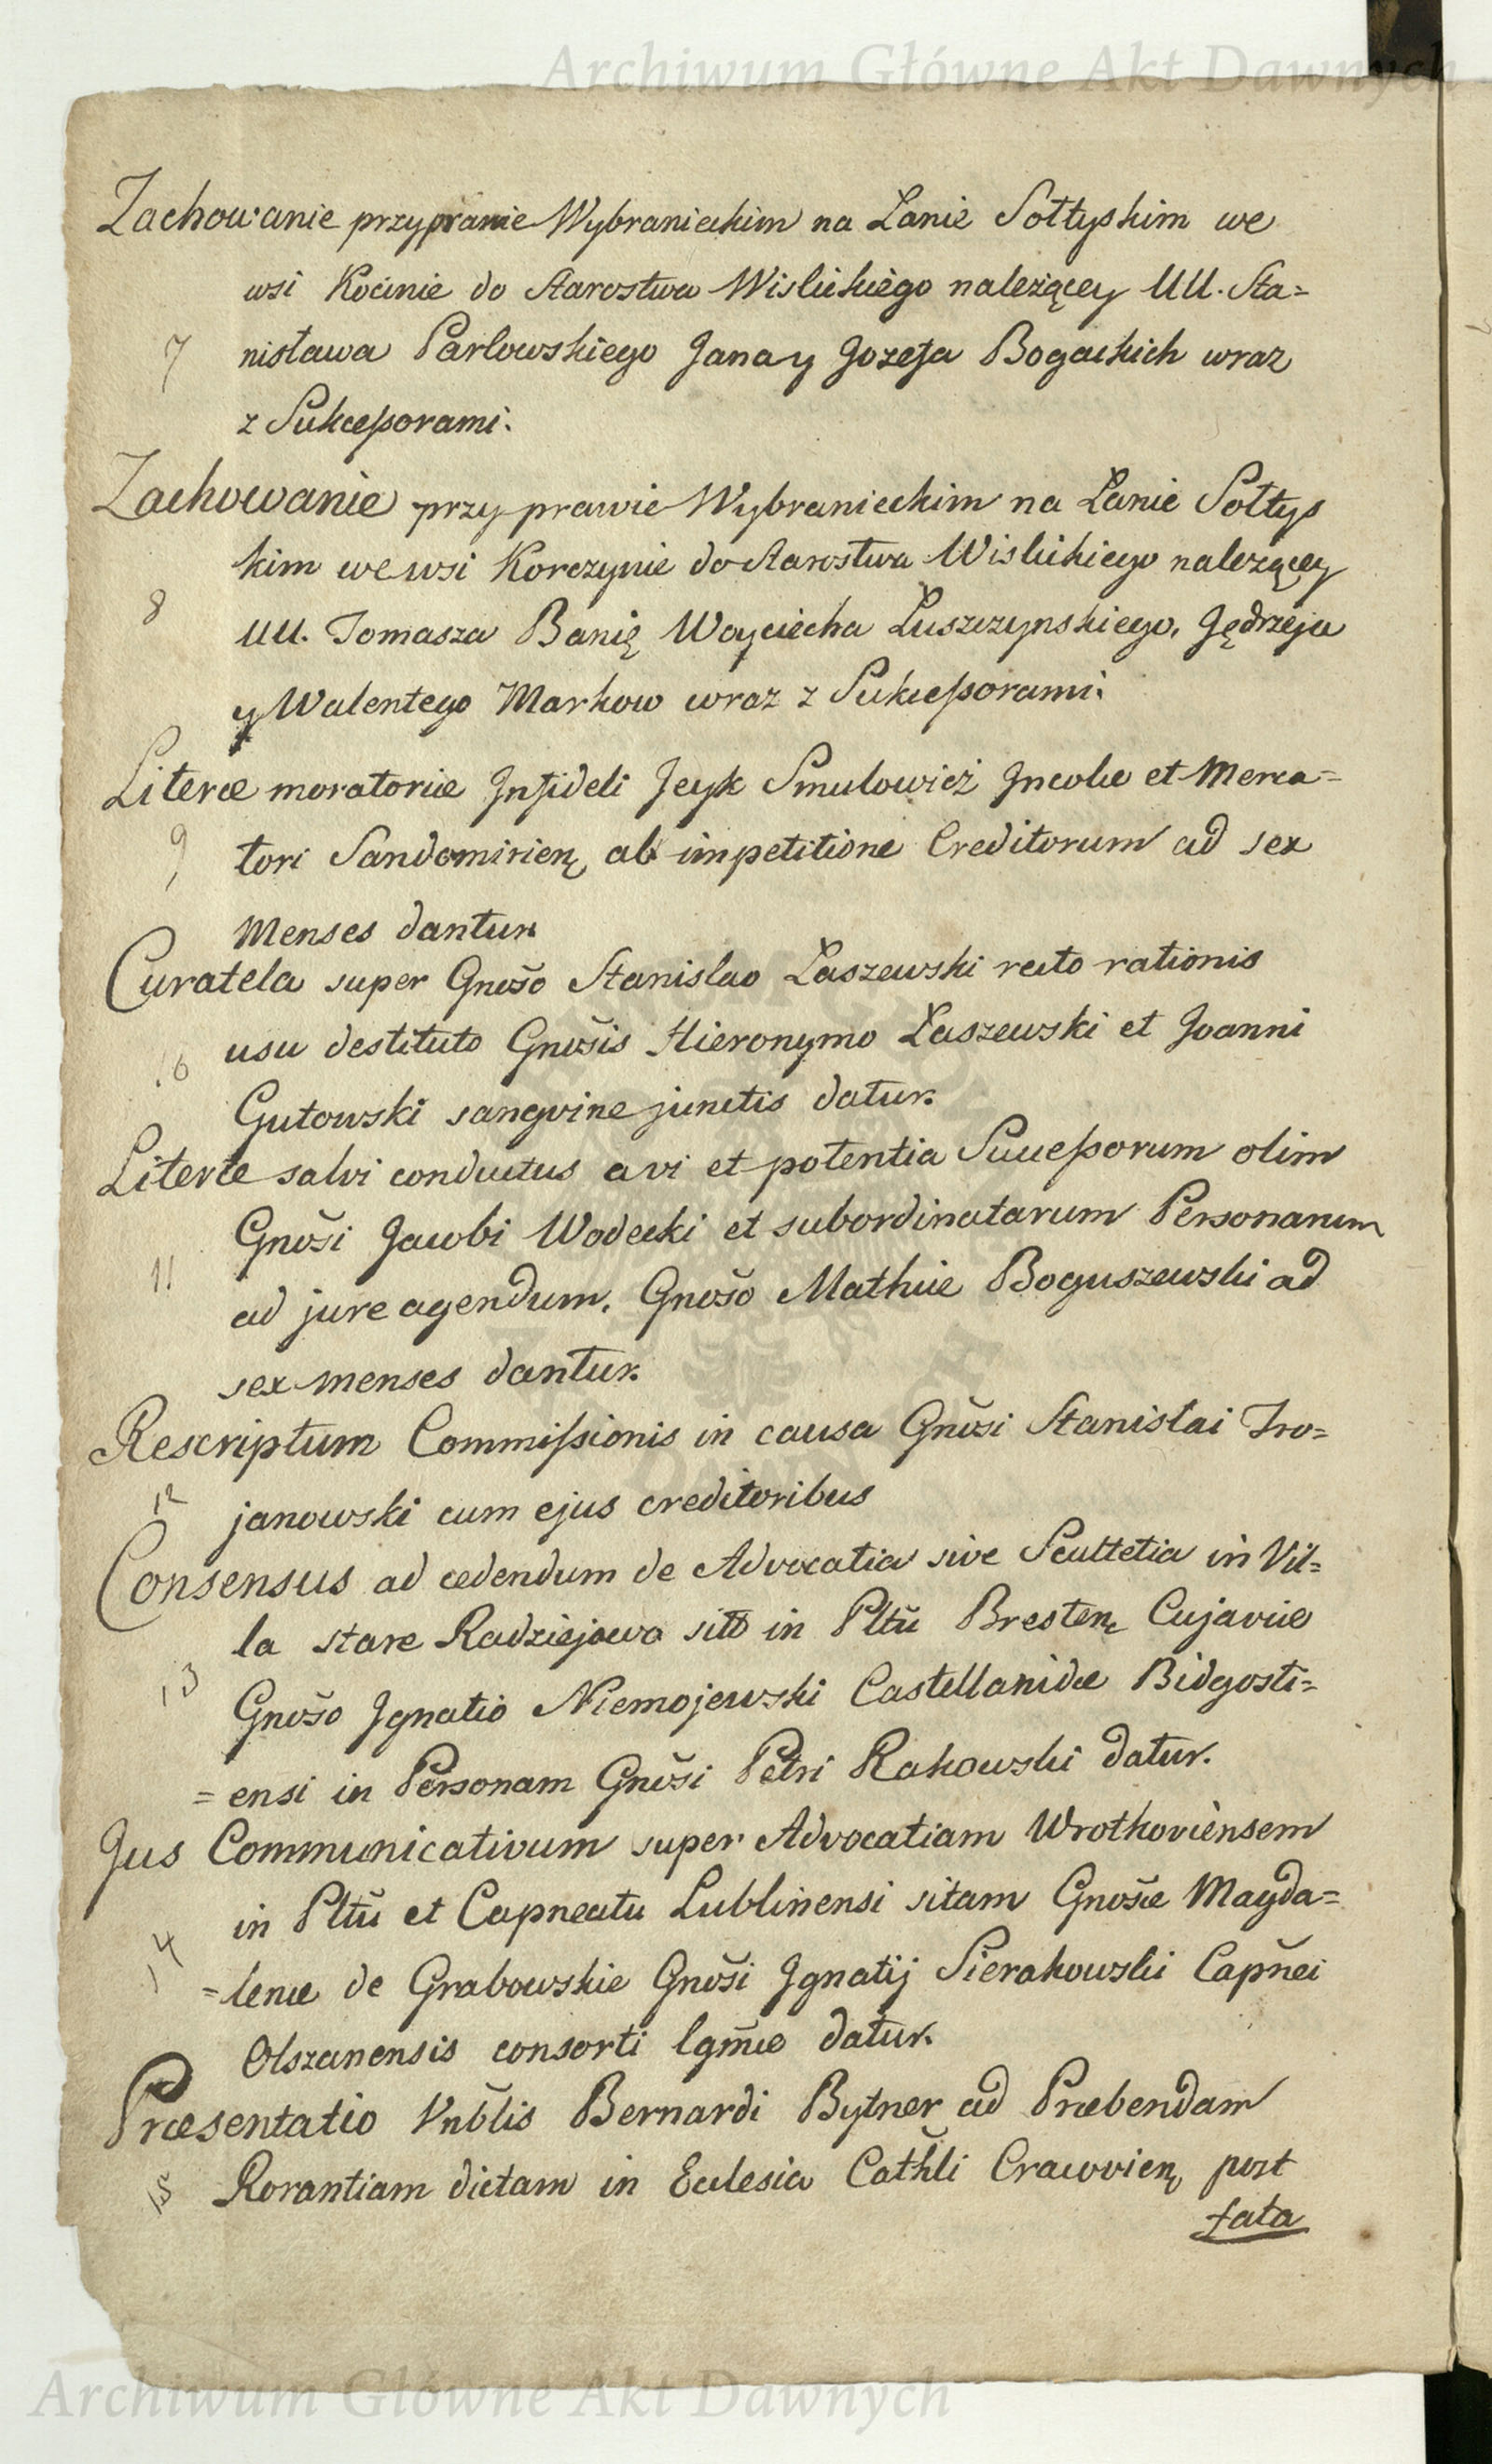 Archiwum Główne Akt Dawnych
Zachowanie przy prawie Wybranieckim na Łanie Sołtyskim we
wsi Kocinie do Starostwa Wislickiego należącey UU. Sta=
7 nisława Parlowskiego Jana y Jozefa Bogackich wraz
z Sukceſsorami.
Zachowanie przy prawie Wybranieckim na Łanie Sołtys
kim we wsi Korczynie do Starostwa Wislickiego należącey
8 UU. Tomasza Banię Woyciecha Łuszczynskiego, Jędrzeja
y Walentego Markow wraz z Sukceſsorami.
Literæ moratoriæ Infideli Jcyk Smulowicż Incolæ et Merca=
9 tori Sandomirien, ab impetitione Creditorum ad sex
Menses dantur.
Curatela super Gnoso Stanislao Łaszewski recto rationis
10 usu destituto Gnosis Hieronymo Łaszewski et Joanni
Gutowski sangvine junctis datur.
Literæ salvi conductus a vi et potentia Succeſsorum olim
Gnosi Jacobi Wodecki et subordinatarum Personarum
11 ad jure agendum, Gnoso Mathiæ Boguszewski ad
sex menses dantur.
Rescriptum Commiſsionis in causa Gnosi Stanisłai Tro=
12 janowski cum ejus creditoribus
Consensus ad cedendum de Advocatia sive Scultetia in Vil=
la stare Radziejowo sitō in Pltū Bresten, Cujaviæ
13 Gnoso Ignatio Niemojewski Castellanidæ Bidgosti=
=ensi in Personam Gnosi Petri Rakowski datur.
Jus Communicativum super Advocatiam Wrotkoviensem
in Pltū et Capneatu Lublinensi sitam Gnosæ Magda=
14 =lenæ de Grabowskie Gnosi Ignatij Sierakowski Capnei
Olszanensis consorti lgmæ datur.
Præsentatio Vnblis Bernardi Bytner ad Præbendam
15 Rorantiam dictam in Ecclesia Cathli Cracovien, post
fata
Archiwum Główne Akt Dawnych